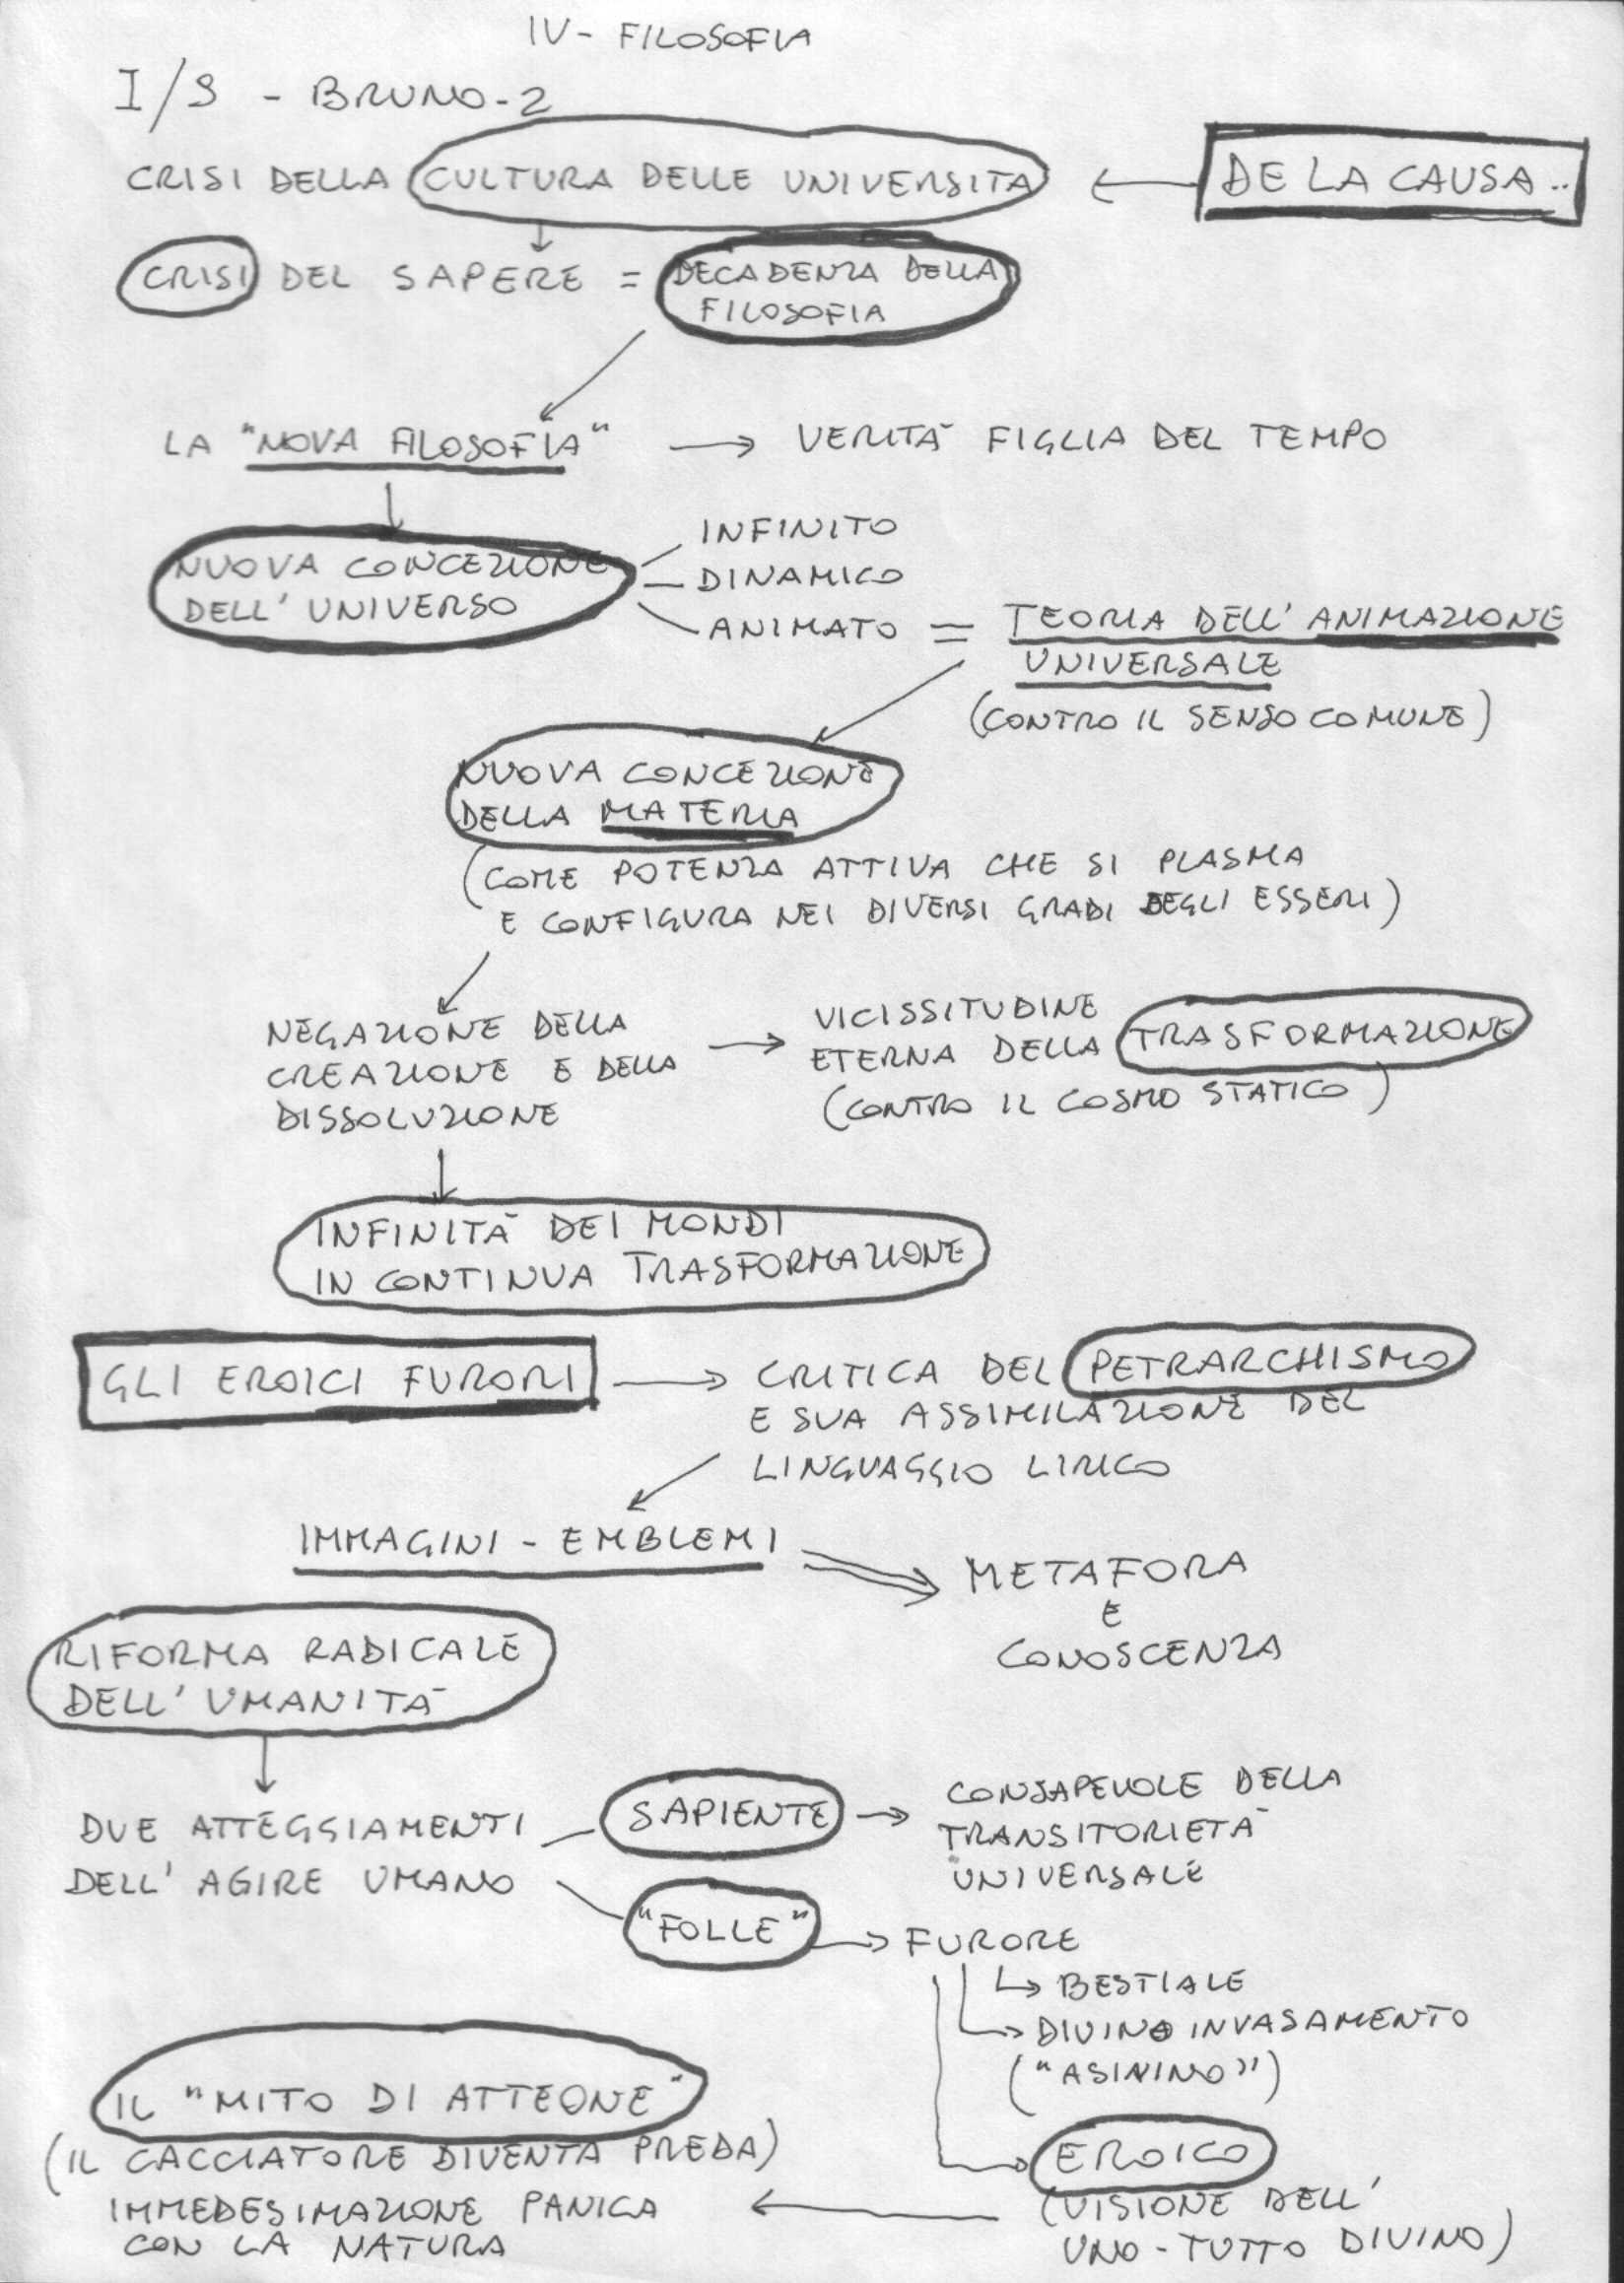 IV - FILOSOFIA
I/S - BRUNO-2
CRISI DELLA CULTURA DELLE UNIVERSITA
DE LA CAUSA..
CRISI DEL SAPERE = DECADENZA DELLA
FILOSOFIA
LA "NOVA FILOSOFIA" → VERITÀ FIGLIA DEL TEMPO
NUOVA CONCEZIONE
DELL'UNIVERSO
INFINITO
DINAMICO
ANIMATO = TEORIA DELL'ANIMAZIONE
UNIVERSALE
(CONTRO IL SENSO COMUNE)
NUOVA CONCEZIONE
DELLA MATERIA
(COME POTENZA ATTIVA CHE SI PLASMA
E CONFIGURA NEI DIVERSI GRADI DEGLI ESSERI)
NEGAZIONE DELLA
CREAZIONE E DELLA
DISSOLUZIONE
VICISSITUDINE
ETERNA DELLA TRASFORMAZIONE
(CONTRO IL COSMO STATICO)
INFINITÀ DEI MONDI
IN CONTINUA TRASFORMAZIONE
GLI EROICI FURORI → CRITICA DEL PETRARCHISMO
E SUA ASSIMILAZIONE DEL
LINGUAGGIO LIRICO
IMMAGINI - EMBLEMI
METAFORA
E
CONOSCENZA
RIFORMA RADICALE
DELL'UMANITÀ
DUE ATTEGGIAMENTI
DELL'AGIRE UMANO
SAPIENTE → CONSAPEVOLE DELLA
TRANSITORIETÀ
UNIVERSALE
"FOLLE" → FURORE
BESTIALE
DIVINO INVASAMENTO
("ASININO")
EROICO
(VISIONE DELL'
UNO-TUTTO DIVINO)
IL "MITO DI ATTEONE"
(IL CACCIATORE DIVENTA PREDA)
IMMEDESIMAZIONE PANICA
CON LA NATURA